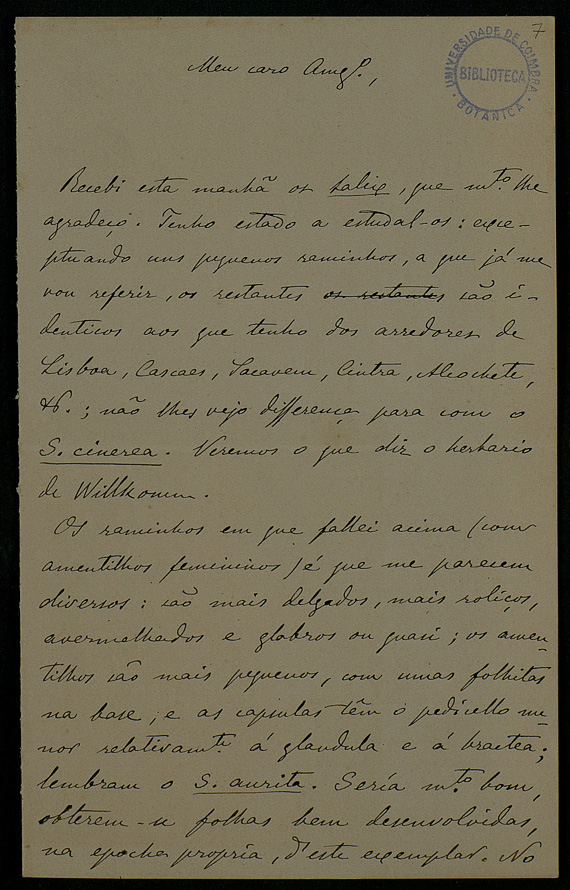 7
UNIVERSIDADE DE COIMBRA
BIBLIOTECA
BOTANICA
Meu caro Amg.º,
Recebi esta manhã os Salix, que m.to lhe
agradeço. Tenho estado a estudal-os: exce-
ptuando uns pequenos raminhos, a que já me
vou referir, os restantes os restantes são i-
denticos aos que tenho dos arredores de
Lisboa, Cascaes, Sacavem, Cintra, Alcochete,
&.; não lhes vejo differença para com o
S. cinerea. Veremos o que diz o herbario
de Willkomm.
Os raminhos em que fallei acima (com
amentilhos femininos) é que me parecem
diversos: são mais delgados, mais roliços,
avermelhados e glabros ou quasi; os amen-
tilhos são mais pequenos, com umas folhitas
na base, e as capsulas têm o pedicello me-
nor relativam.te á glandula e á bractea;
lembram o S. aurita. Sería m.to bom,
obterem-se folhas bem desenvolvidas,
na epocha propria, d'este exemplar. No